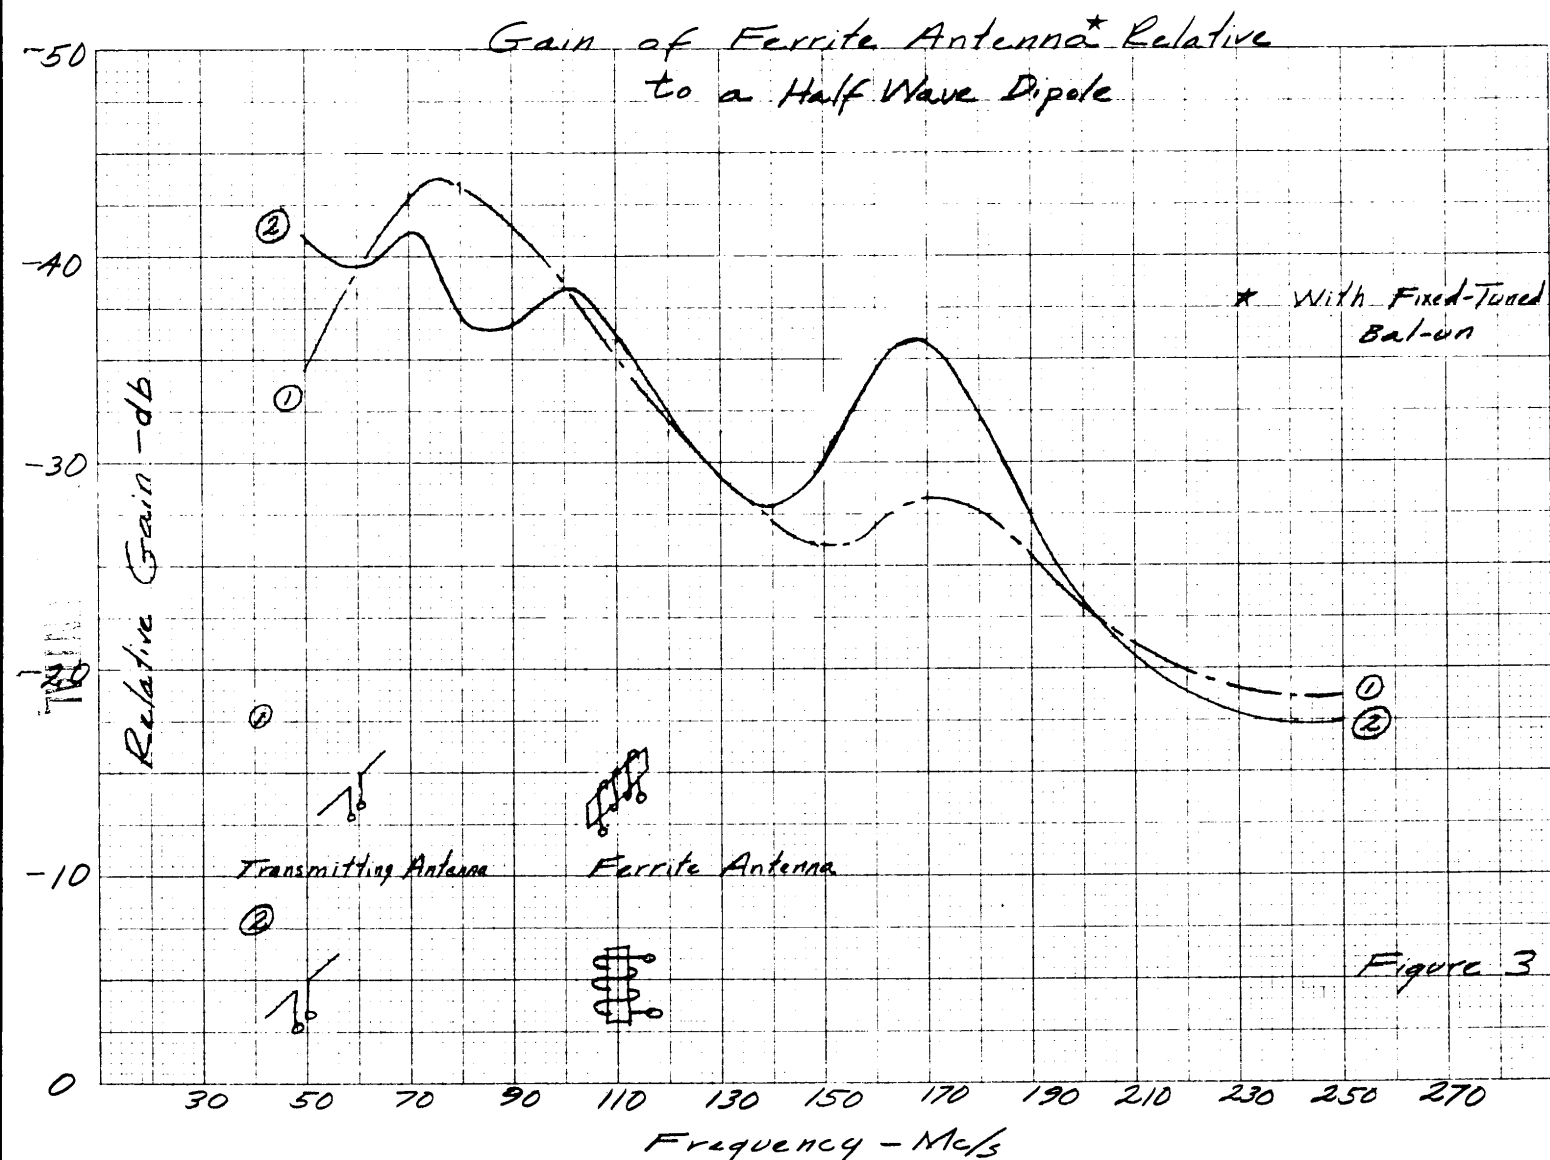 Gain of Ferrite Antenna* Relative
to a Half Wave Dipole
-50
-40
-30
-20
-10
0
Relative Gain - db
* With Fixed-Tuned
Bal-un
②
①
①
②
①
Transmitting Antenna
Ferrite Antenna
②
Figure 3
30 50 70 90 110 130 150 170 190 210 230 250 270
Frequency - Mc/s